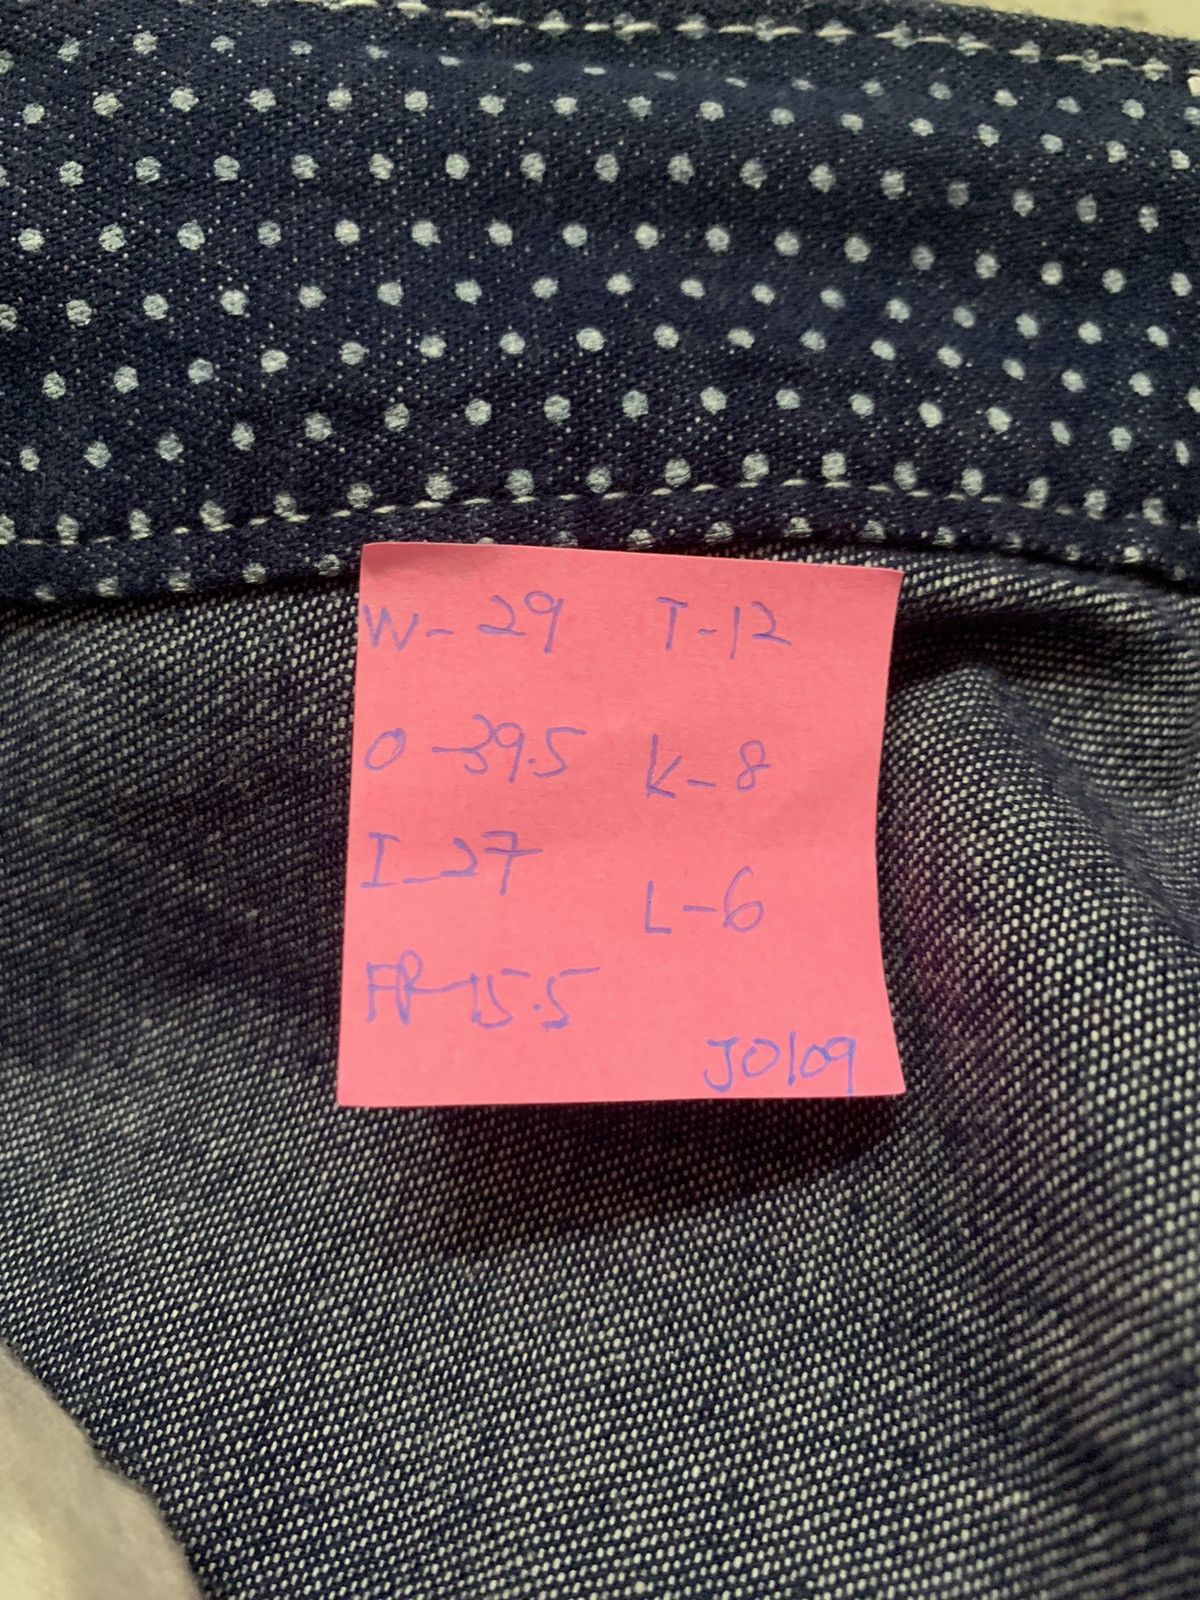 W-29 T-12
O-39.5 K-8
I-27
L-6
FR-15.5
J0109